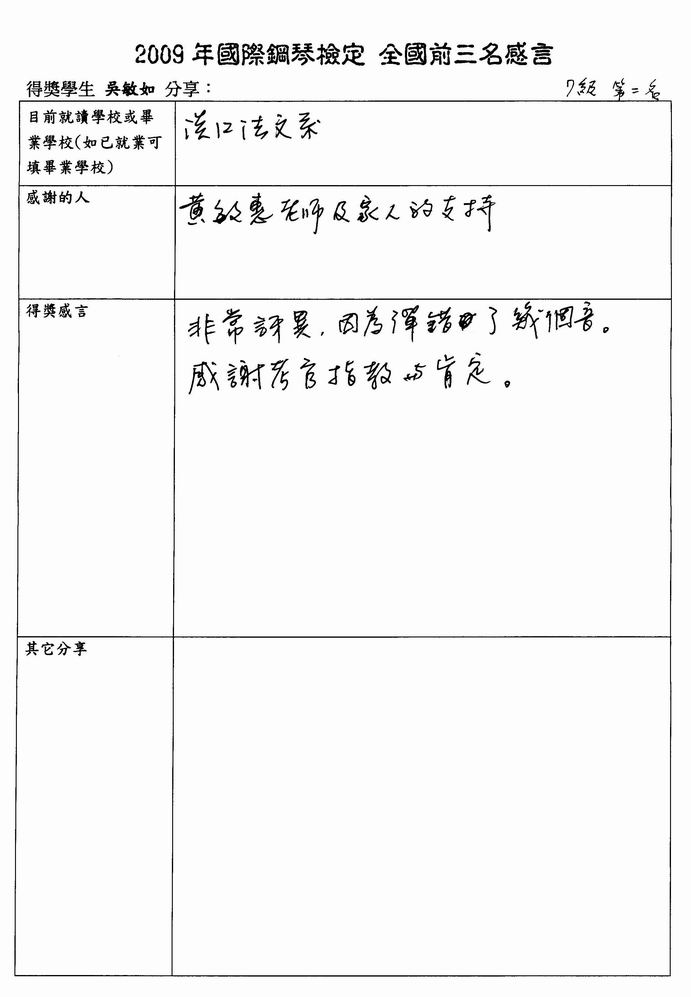 2009 年國際鋼琴檢定 全國前三名感言
得獎學生 吳敏如 分享：
7級 第二名
目前就讀學校或畢
業學校(如已就業可
填畢業學校)
淡江法文系
感謝的人
黃敏惠老師及家人的支持
得獎感言
非常訝異，因為彈錯了幾個音。
感謝考官指教與肯定。
其它分享